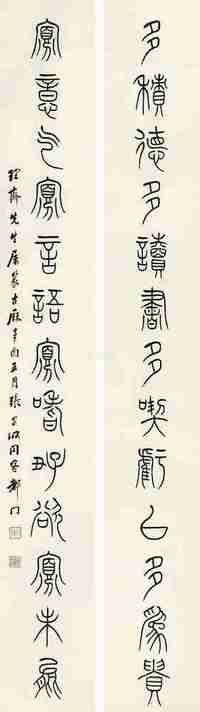 多積德多讀書多喫虧㠯多為貴
寡意气寡言語寡嗜好欲寡未能
齋先生屬篆辛酉五月張同客都門